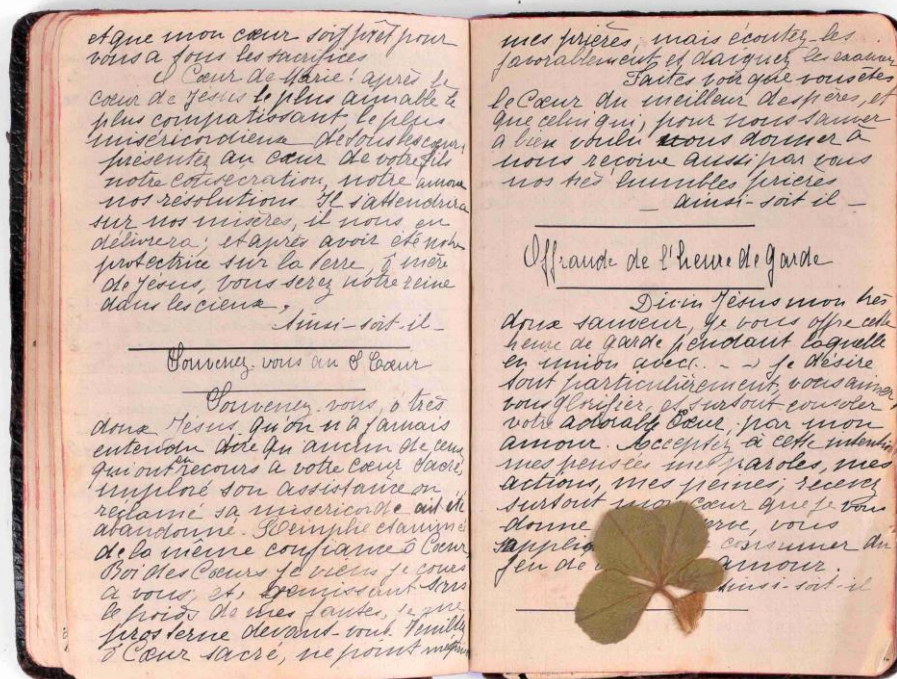 et que mon cœur soit prêt pour
vous a tous les sacrifices
O Cœur de Marie! après le
cœur de Jésus le plus aimable le
plus compatissant le plus
miséricordieux de tous les cœurs
présentez au cœur de votre fils
notre consécration, notre amour
nos résolutions. Il s'attendrira
sur nos misères, il nous en
délivrera; et après avoir été notre
protectrice sur la terre, ô mère
de Jésus, vous serez notre reine
dans les cieux,
Ainsi-soit-il-
Souvenez-vous au S Cœur
Souvenez-vous, ô très
doux Jésus qu'on n'a jamais
entendu dire qu'aucun de ceux
qui ont eu recours a votre cœur sacré
imploré son assistance ou
réclamé sa miséricorde ait été
abandonné. Remplie et animé
de la même confiance ô Cœur,
Roi des Cœurs je viens je cours
a vous, et, gémissant sous
le poids de mes fautes, je me
prosterne devant vous. Veuillez
ô Cœur sacré, ne point mépriser
mes prières, mais écoutez-les
favorablement et daignez les exaucer
Faites voir que vous êtes
le Cœur du meilleur des pères, et
que celui qui, pour nous sauver
a bien voulu vous donner à
nous reçoive aussi par vous
nos très humbles prières
_ ainsi-soit il _
Offrande de l'heure de garde
Divin Jésus mon très
doux sauveur, je vous offre cette
heure de garde pendant laquelle
en union avec.. - - je désire
tout particulièrement, vous aimer,
vous glorifier, et surtout consoler
votre adorable Cœur, par mon
amour. Acceptez à cette intention
mes pensées mes paroles, mes
actions, mes peines; recevez
surtout mon cœur que je vous
donne vous
consumer du
feu de amour.
Ainsi-soit-il